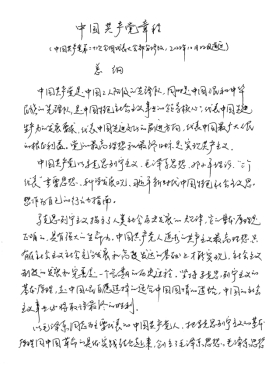 中国共产党章程
（中国共产党第二十次全国代表大会部分修改，2022年10月22日通过）
总纲
中国共产党是中国工人阶级的先锋队，同时是中国人民和中华
民族的先锋队，是中国特色社会主义事业的领导核心，代表中国先进
生产力的发展要求，代表中国先进文化的前进方向，代表中国最广大人民
的根本利益。党的最高理想和最终目标是实现共产主义。
中国共产党以马克思列宁主义、毛泽东思想、邓小平理论、“三个
代表”重要思想、科学发展观、习近平新时代中国特色社会主义思
想作为自己的行动指南。
马克思列宁主义揭示了人类社会历史发展的规律，它的基本原理是
正确的，具有强大的生命力。中国共产党人追求的共产主义最高理想，只
有在社会主义社会充分发展和高度发达的基础上才能实现。社会主义
制度的发展和完善是一个长期的历史过程。坚持马克思列宁主义的
基本原理，走中国人民自愿选择的适合中国国情的道路，中国的社会
主义事业必将取得最终的胜利。
以毛泽东同志为主要代表的中国共产党人，把马克思列宁主义的基本
原理同中国革命的具体实践结合起来，创立了毛泽东思想。毛泽东思想